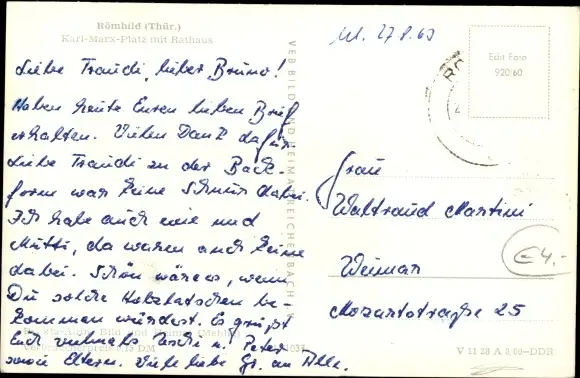 Römhild (Thür.)
Karl-Marx-Platz mit Rathaus
27.8.60
Echt Foto
920/60
Liebe Traudi, lieber Bruno!
Haben heute Euren lieben Brief
erhalten. Vielen Dank dafür
Liebe Traudi zu der Back-
form war keine Schnur dabei.
Ich habe auch eine und
Mutti, da waren auch keine
dabei. Schön wäre es, wenn
Du solche Holzlatschen be-
kommen würdest. Es grüßt
Euch vielmals u. Peter
sowie Eltern. Viele liebe Gr. an Alle.
Frau
Waltraud Martini
Weimar
Mozartstraße 25
€ 4.-
VEB BILD UND HEIMAT REICHENBACH i. V.
V 11 28 A 3,00-DDR